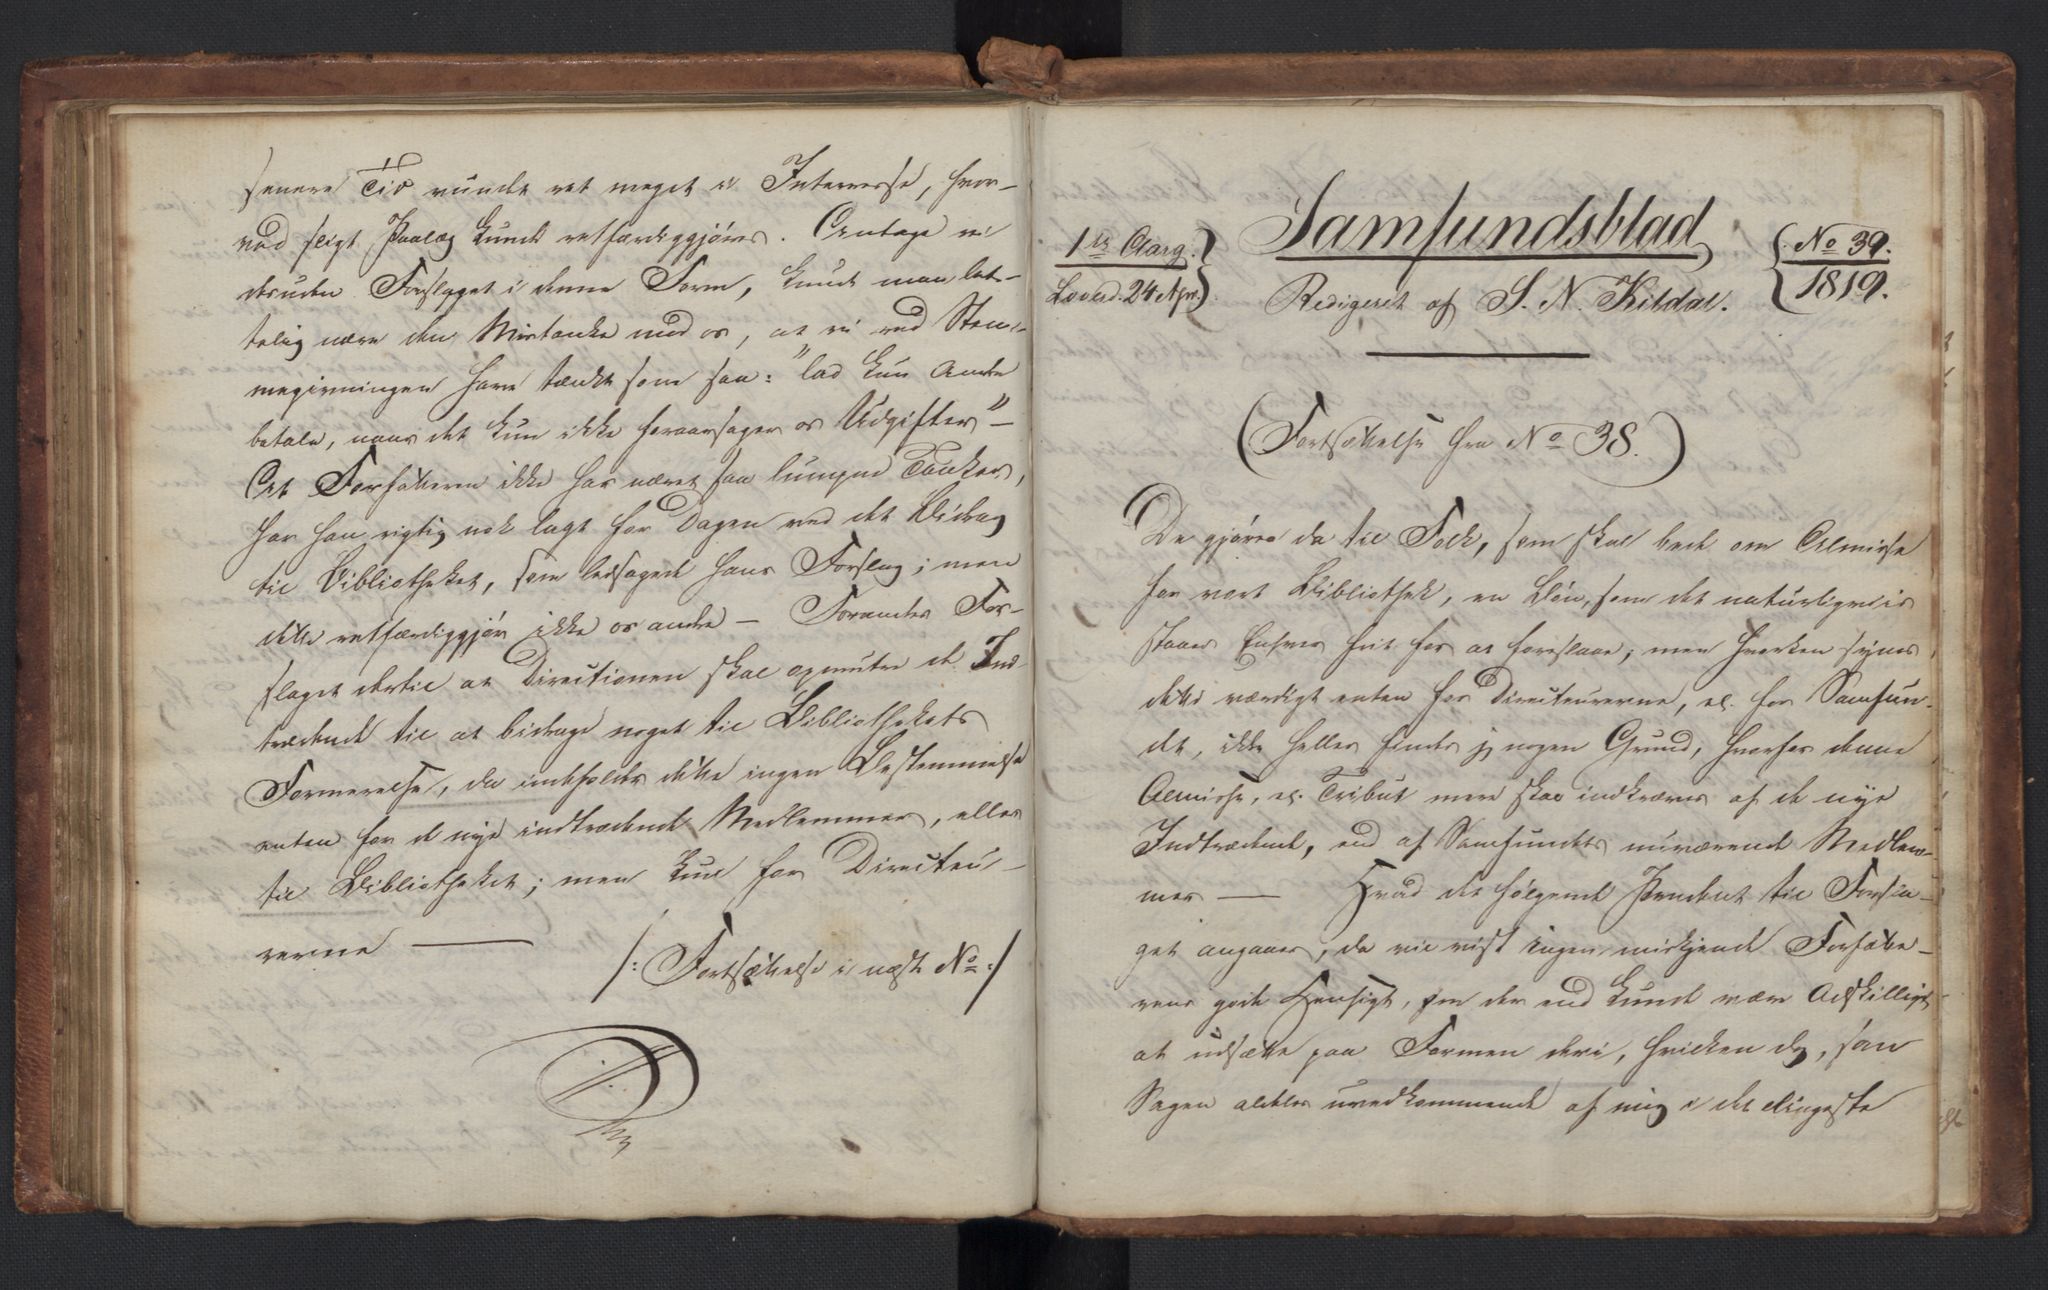 senere Tid vundet ret meget i Interesse, hvor-
ved sligt Paalæg kunde retfærdiggjøres. Antage vi
desuden Forslaget i denne Form, kunde man let-
telig nære den Mistanke mod os, at vi ved Stem-
megivningen have tænkt som saa: "lad kun Andre
betale, naar det kun ikke foraarsager os Udgifter" –
At Forfatteren ikke har næret saa lumpne Tanker,
har han rigtig nok lagt for Dagen ved det Bidrag
til Bibliotheket, som ledsagede hans Forslag; men
dette retfærdiggjør ikke os andre – Forandres For-
slaget dertil at Directionen skal opmuntre de Ind-
trædende til at bidrage noget til Bibliothekets
Formerelse, da indholder dette ingen Bestemmelse
enten for de nye indtrædende Medlemmer, eller
til Bibliotheket; men kun for Directeu-
rerne —
/: Fortsættelse i næste No :/
1ste Aarg.
Løverd. 24 Apr.
Samfundsblad
Redigeret af S. N. Kildal.
No 39.
1819.
(Fortsættelse fra No 38.)
De gjøres da til Folk, som skal bede om Almisse
for vort Bibliothek, en Bøn, som det naturligviis
staaer Enhver frit for at foreslaae; men hverken synes
dette værdigt enten for Directeurerne, el. for Samfun-
det, ikke heller finder jeg nogen Grund, hvorfor denne
Almisse, el. Tribut mere skal indkræves af de nye
Indtrædende, end af Samfundets nuværende Medlem-
mer — Hvad det følgende Pendent til Forsla-
get angaaer, da vil vist Ingen miskjende Forfatte-
rens gode Hensigt, om der end kunde være Adskilligt
at udsætte paa Formen deri, hvilken dog, som
Sagen aldeles uvedkommende af mig i det ringeste